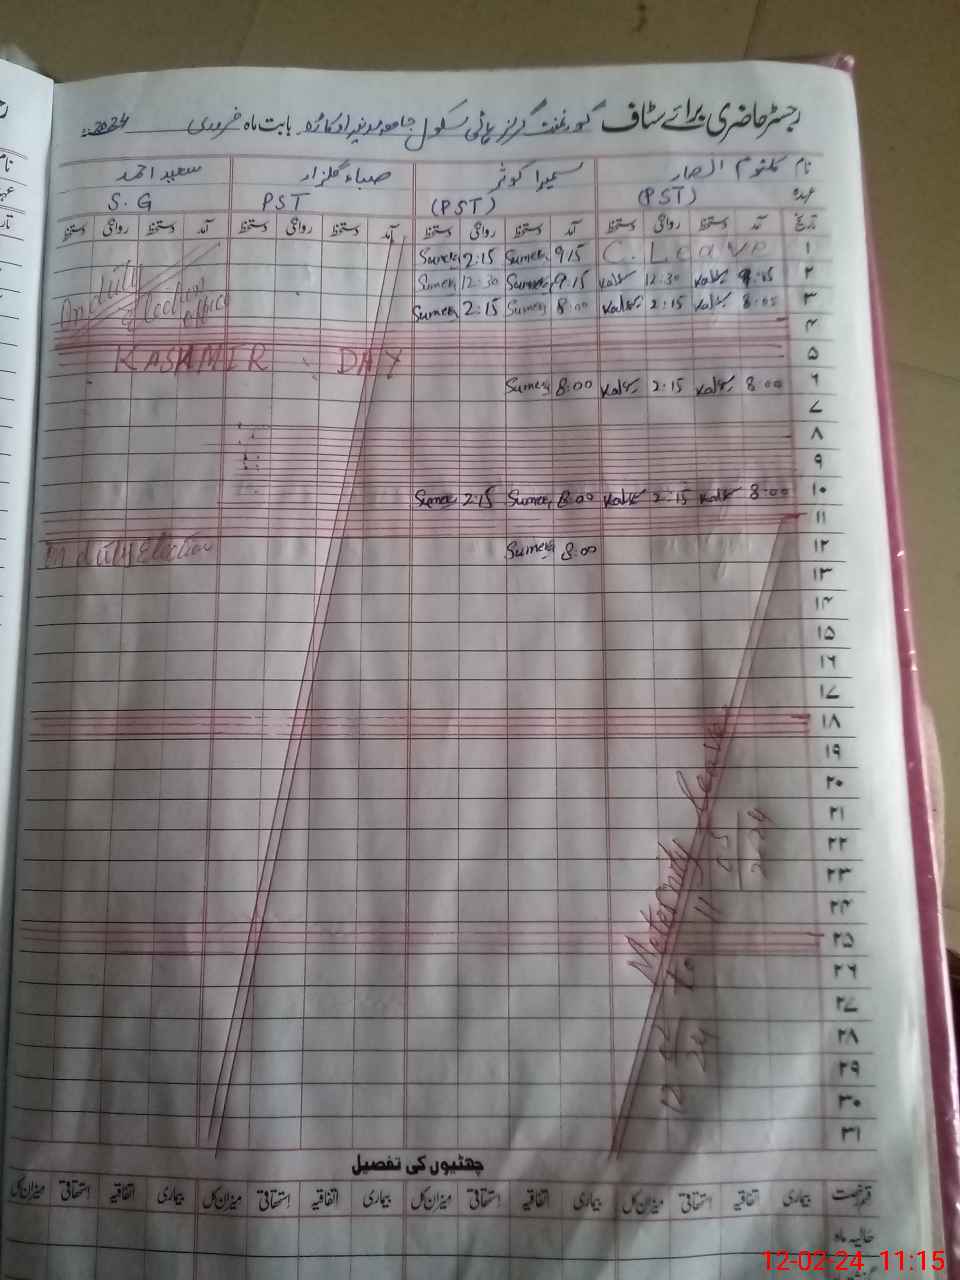 رجسٹر حاضری برائے سٹاف گورنمنٹ گرلز ہائی سکول جامعہ مدنیہ اوکاڑہ بابت ماہ فروری 2024
نام کلثوم سمیرا کوثر صباء گلزار سعید احمد
عہدہ (PST) (PST) PST S.G
تاریخ آمد دستخط روانگی دستخط آمد دستخط روانگی دستخط آمد دستخط روانگی دستخط آمد دستخط روانگی دستخط
۱ C. Leave 9:15 Sumera 2:15 Sumera
On duty Election office
۲ 9:15 12:30 9:15 Sumera 12:30 Sumera
۳ 8:05 2:15 8:00 Sumera 2:15 Sumera
۴
۵ KASHMIR DAY
۶ 8:00 2:15 8:00 Sumera
۷
۸
۹
۱۰ 8:00 2:15 8:00 Sumera 2:15 Sumera
۱۱
۱۲ 8:00 Sumera On duty Election
۱۳
۱۴
۱۵
۱۶
۱۷
۱۸
۱۹
۲۰
۲۱
۲۲
۲۳
۲۴
۲۵
۲۶
۲۷
۲۸
۲۹
۳۰
۳۱
Maternity Leave
12 2 24 to 11 05 2024
چھٹیوں کی تفصیل
قسم رخصت بیماری اتفاقیہ استحقاقی میزان کل بیماری اتفاقیہ استحقاقی میزان کل بیماری اتفاقیہ استحقاقی میزان کل بیماری اتفاقیہ استحقاقی میزان کل
حالیہ ماہ
12-02-24 11:15